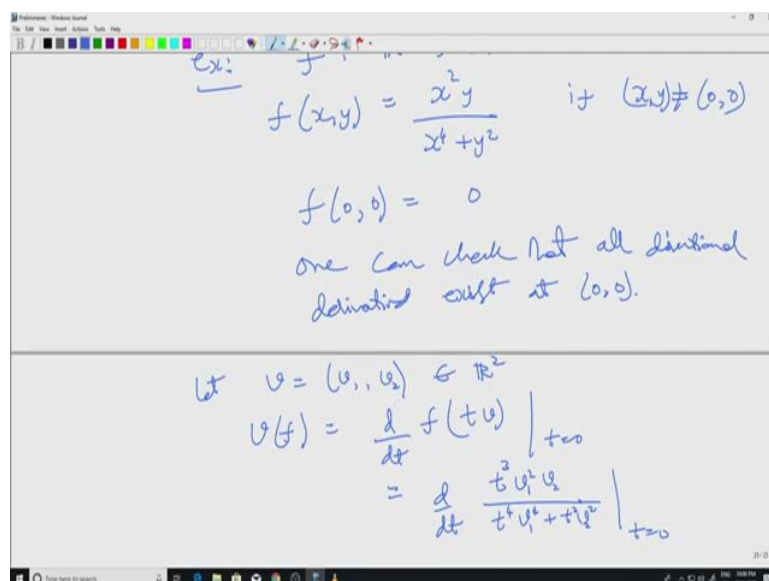 Preliminaries - Windows Journal
File Edit View Insert Actions Tools Help
B
ex: f :
f(x,y) = x²y / (x⁴ + y²) if (x,y) ≠ (0,0)
f(0,0) = 0
one can check that all directional
derivatives exist at (0,0).
Let v = (v₁, v₂) ∈ ℝ²
v(f) = d/dt f(tv) |t=0
= d/dt t³v₁²v₂ / (t⁴v₁⁴ + t²v₂²) |t=0
Type here to search